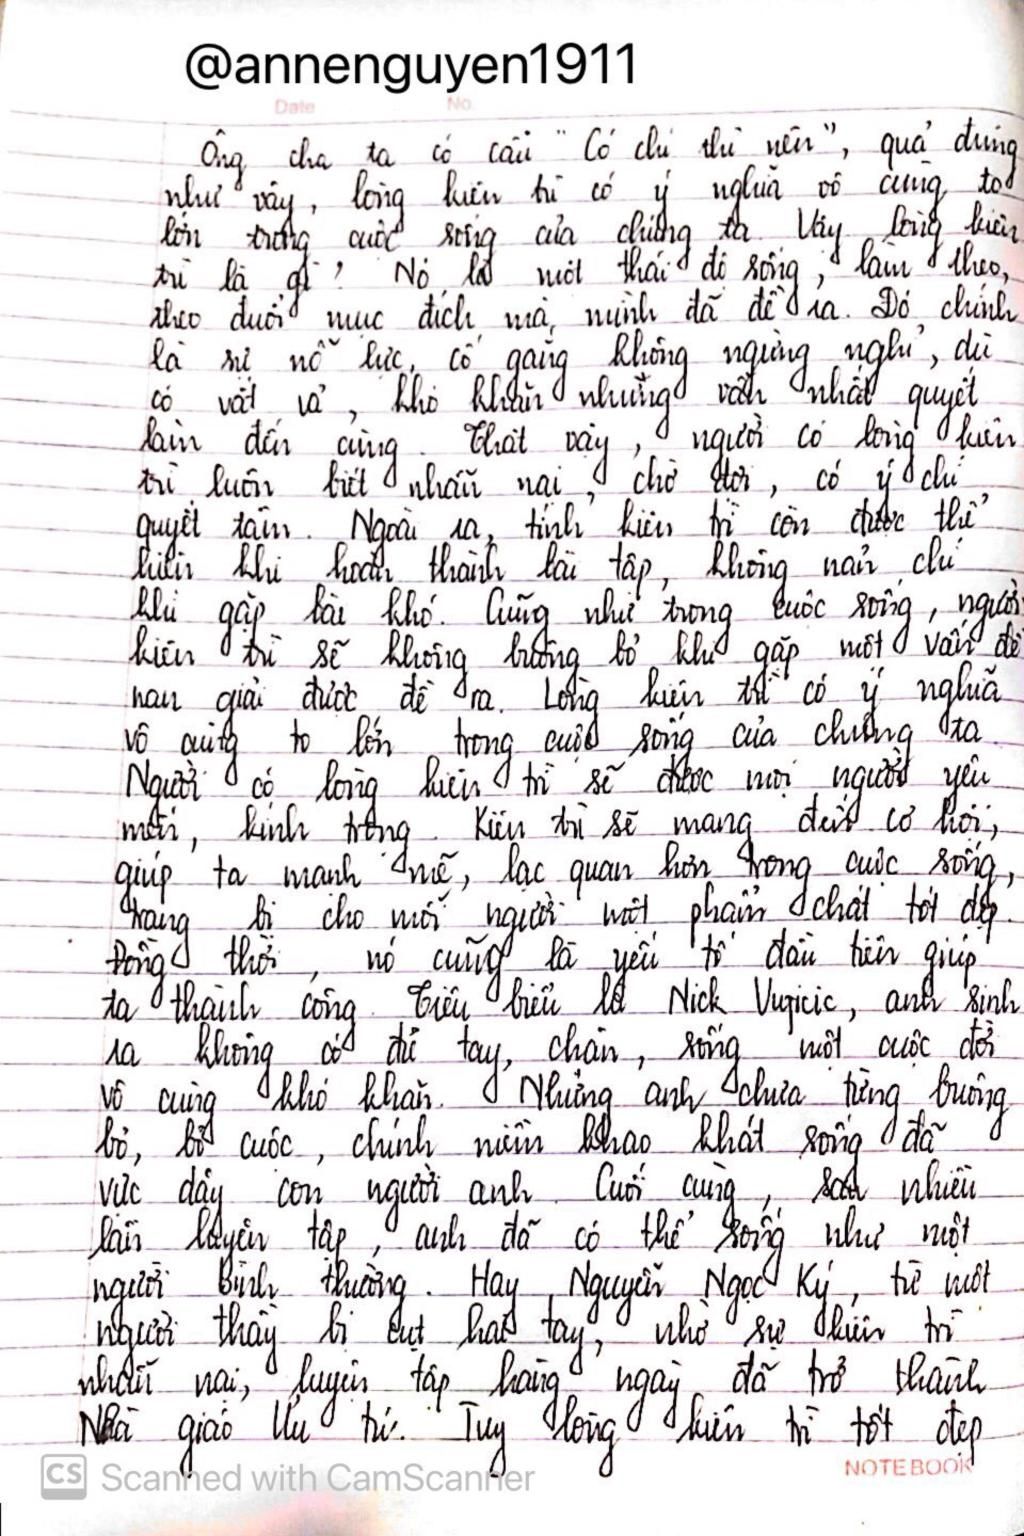 @annenguyen1911
Date No.
Ông cha ta có câu "Có chí thì nên", quả đúng
như vậy, lòng kiên trì có ý nghĩa vô cùng to
lớn trong cuộc sống của chúng ta. Vậy lòng kiên
trì là gì? Nó là một thái độ sống, làm theo,
theo đuổi mục đích mà mình đã đề ra. Đó chính
là sự nỗ lực, cố gắng không ngừng nghỉ, dù
có vất vả, khó khăn nhưng vẫn nhất quyết
làm đến cùng. Thật vậy, người có lòng kiên
trì luôn biết nhẫn nại, chờ đợi, có ý chí
quyết tâm. Ngoài ra, tính kiên trì còn được thể
hiện khi hoàn thành bài tập, không nản chí
khi gặp bài khó. Cũng như trong cuộc sống, người
kiên trì sẽ không buông bỏ khi gặp một vấn đề
nan giải được đề ra. Lòng kiên trì có ý nghĩa
vô cùng to lớn trong cuộc sống của chúng ta
Người có lòng kiên trì sẽ được mọi người yêu
mến, kính trọng. Kiên trì sẽ mang đến cơ hội,
giúp ta mạnh mẽ, lạc quan hơn trong cuộc sống,
trang bị cho mỗi người một phẩm chất tốt đẹp.
Đồng thời, nó cũng là yếu tố đầu tiên giúp
ta thành công. Tiêu biểu là Nick Vujicic, anh sinh
ra không có đủ tay, chân, sống một cuộc đời
vô cùng khó khăn. Nhưng anh chưa từng buông
bỏ, bỏ cuộc, chính niềm khao khát sống đã
vực dậy con người anh. Cuối cùng, sau nhiều
lần luyện tập, anh đã có thể sống như một
người bình thường. Hay Nguyễn Ngọc Ký, từ một
người thầy bị cụt hai tay, nhờ sự kiên trì
nhẫn nại, luyện tập hàng ngày đã trở thành
Nhà giáo Ưu tú. Tuy lòng kiên trì tốt đẹp
CS Scanned with CamScanner
NOTEBOOK